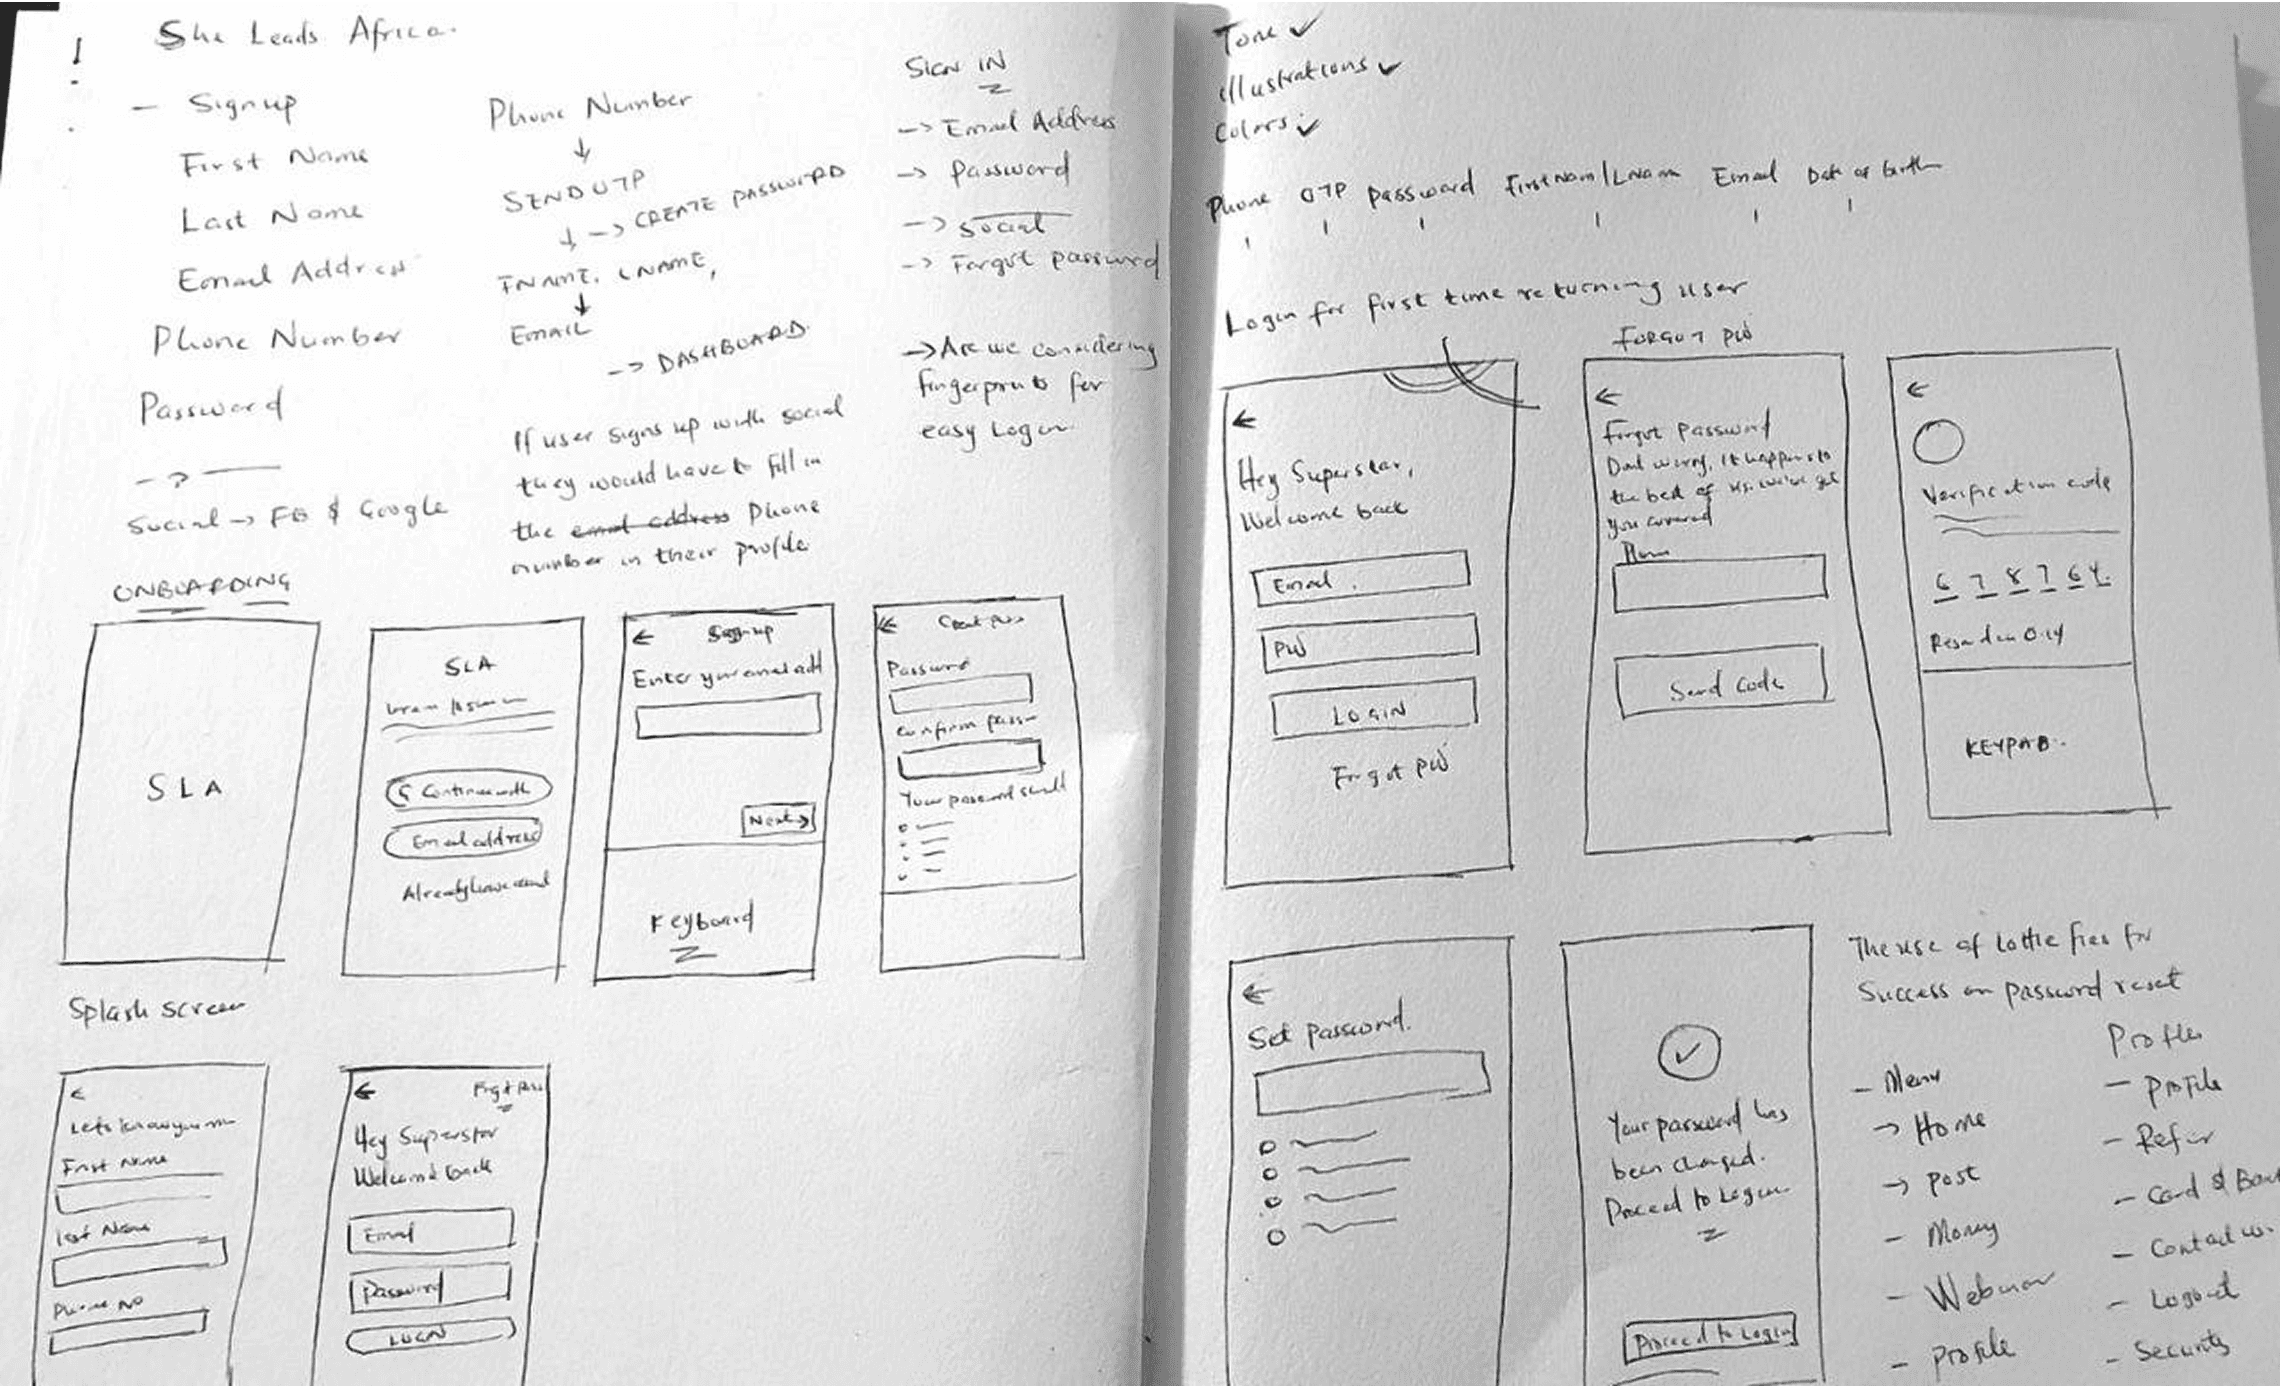 She Leads Africa.
- Signup
First Name
Last Name
Email Address
Phone Number
Password
Social → FB & Google
Phone Number
↓
SEND OTP
↓ → CREATE PASSWORD
FNAME, LNAME,
↓
EMAIL
→ DASHBOARD
If user signs up with social
they would have to fill in
the email address Phone
number in their profile
SIGN IN
→ Email Address
→ Password
→ Social
→ Forgot password
→ Are we considering
fingerprints for
easy Login
ONBOARDING
SLA
Splash screen
SLA
Lorem Ipsum
Continue with
Email address
Already have
← Signup
Enter your email add
Next →
Keyboard
←
Password
Confirm pass
Your password
←
First Name
Last Name
Phone No
←
Hey Superstar
Welcome back
Email
Password
LOGIN
Tone ✓
illustrations ✓
Colors ✓
Phone OTP password First Nam/LNam Email Date of birth
Login for first time returning user
←
Hey Superstar,
Welcome back
Email
PW
LOGIN
Forgot PW
FORGOT PW
←
Forgot Password
Dont worry, it happens to
the best of us. we've got
you covered
Send Code
←
Verification code
6 7 8 7 6 4
Resend in 0:14
KEYPAD
←
Set password.
✓
Your password has
been changed.
Proceed to Login
Proceed to Login
The use of Lottie files for
Success on password reset
- Menu
→ Home
→ post
- Money
- Webinar
- profile
Profile
- profile
- Refer
- Card &
- Contact us.
- Logout
- Security